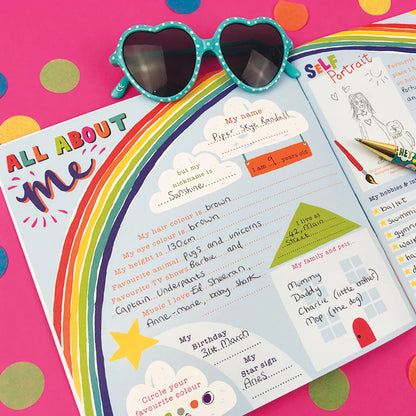 ALL ABOUT
me
SELF
Portrait
My name
Piper Skye Randall
but my
nickname is
Sunshine
I am 9 years old
My hair colour is brown
My eye colour is brown
My height is 130cm
Favourite animal Pugs and unicorns
Favourite TV shows Barbie and
Captain Underpants
Music I love Ed Sheeran,
Anne-marie, baby shark
I live at
42, Main
Street
My family and pets
Mummy
Daddy
Charlie (little brother)
Mop (the dog)
My Birthday
31st March
My
Star sign
Aries
Circle your
favourite colour
My hobbies &
ballet
Swimming